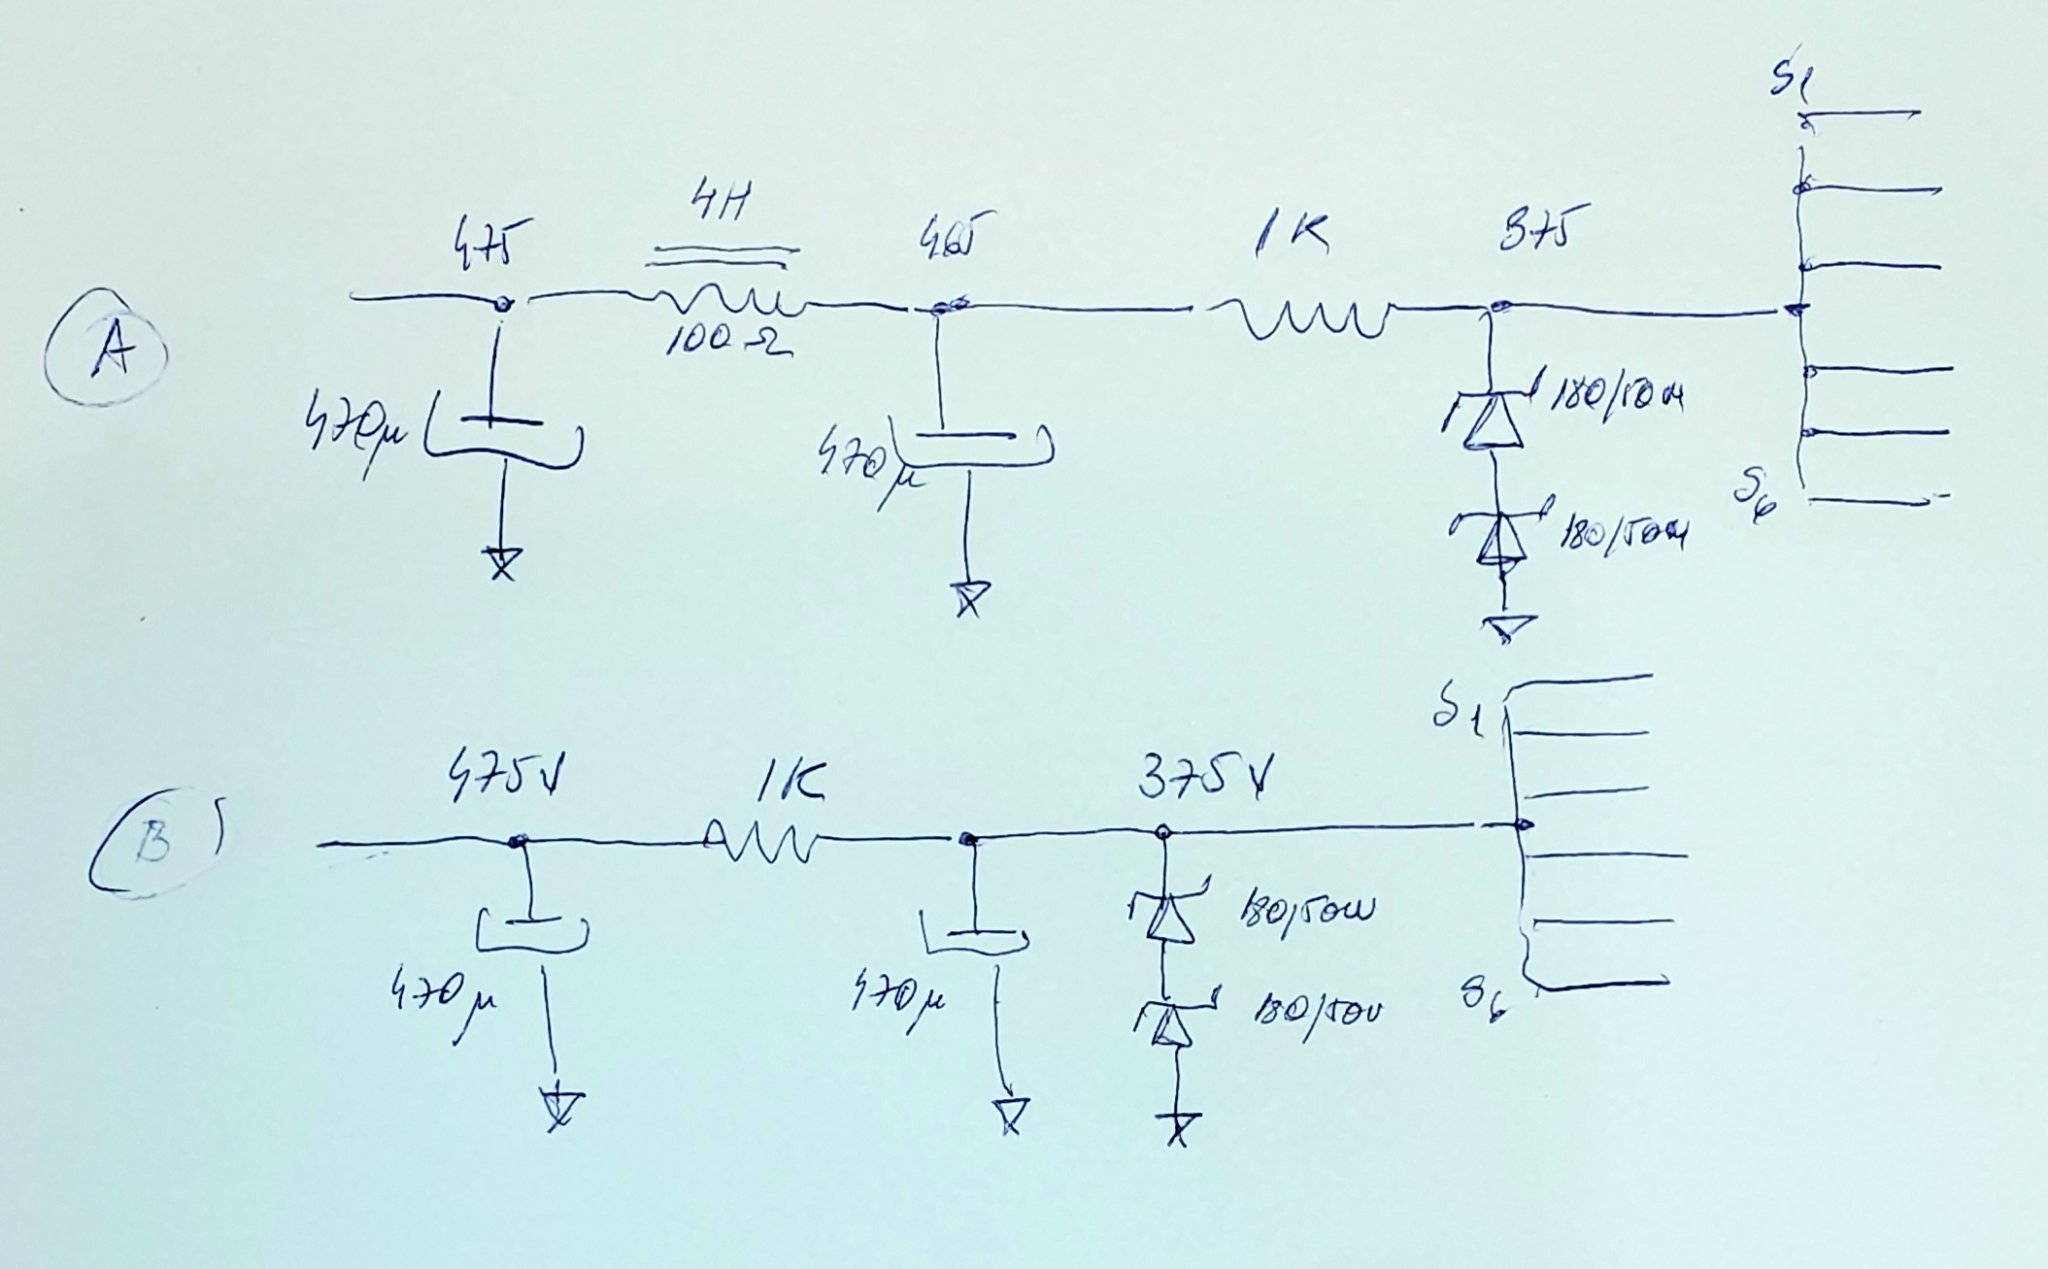 S1
4H
475
465
1K
375
A
100Ω
470μ
470μ
180/50W
180/50W
S6
S1
475V
1K
375V
B
180/50W
470μ
470μ
180/50
S6